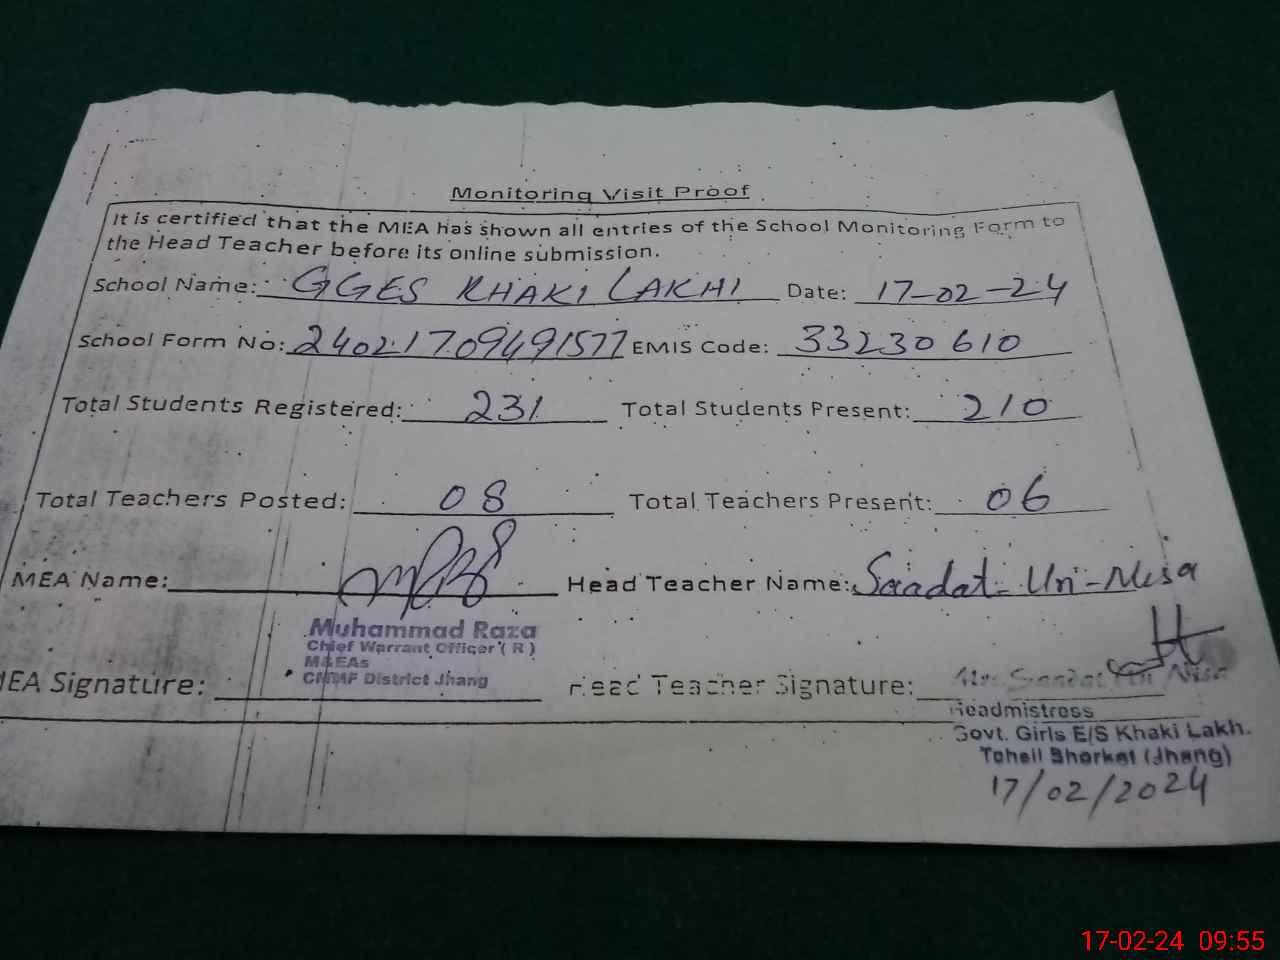 Monitoring Visit Proof
It is certified that the MEA has shown all entries of the School Monitoring Form to
the Head Teacher before its online submission.
School Name: GGES KHAKI LAKHI Date: 17-02-24
School Form No: 24021709491577 EMIS Code: 33230610
Total Students Registered: 231 Total Students Present: 210
Total Teachers Posted: 08 Total Teachers Present: 06
MEA Name: Head Teacher Name: Saadat-Un-Nisa
Muhammad Raza
Chief Warrant Officer (R)
M&EAs
CMMF District Jhang
MEA Signature: Head Teacher Signature:
Mrs. Saadat Un Nisa
Headmistress
Govt. Girls E/S Khaki Lakh.
Tehsil Shorkot (Jhang)
17/02/2024
17-02-24 09:55